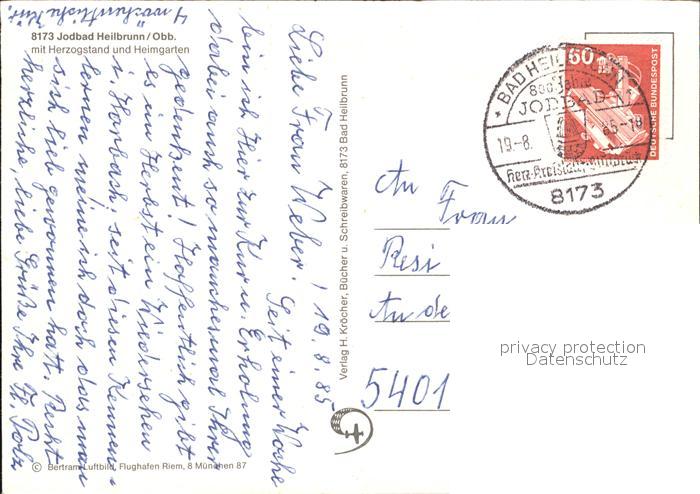 8173 Jodbad Heilbrunn/Obb.
mit Herzogstand und Heimgarten
Liebe Frau Weber! 19.8.85
Seit einer Woche
bin ich hier zur Kur u. Erholung
dabei auch so manchesmal Ihrer
gedenkent! Hoffentlich gibt
es im Herbst ein Wiedersehen
i. Horbach, seit diesen Kennen-
lernen meine ich doch das man
sich lieb gewonnen hat. Recht
herzliche, liebe Grüße Ihre
4 wöchentliche Kur.
© Bertram Luftbild, Flughafen Riem, 8 München 87
Verlag H. Kröcher, Bücher u. Schreibwaren, 8173 Bad Heilbrunn
BAD HEIL
800 Jahre
JODBAD
19.-8. 85-18
Herz-Kreislauf
8173
60
DEUTSCHE BUNDESPOST
An Frau
Resi
An de
5401
privacy protection
Datenschutz